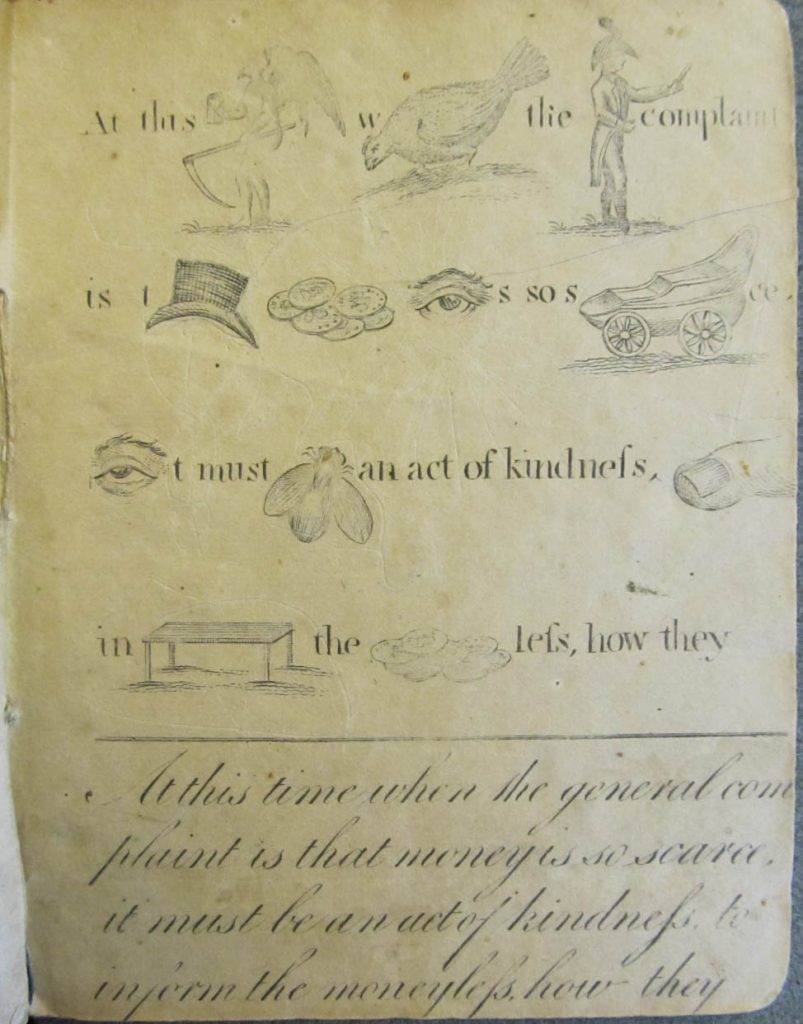 At this w the complaint
is t s so s ce.
t must an act of kindneſs,
in the leſs, how they
At this time when the general com
plaint is that money is so scarce,
it must be an act of kindneſs, to
inform the moneyleſs, how they